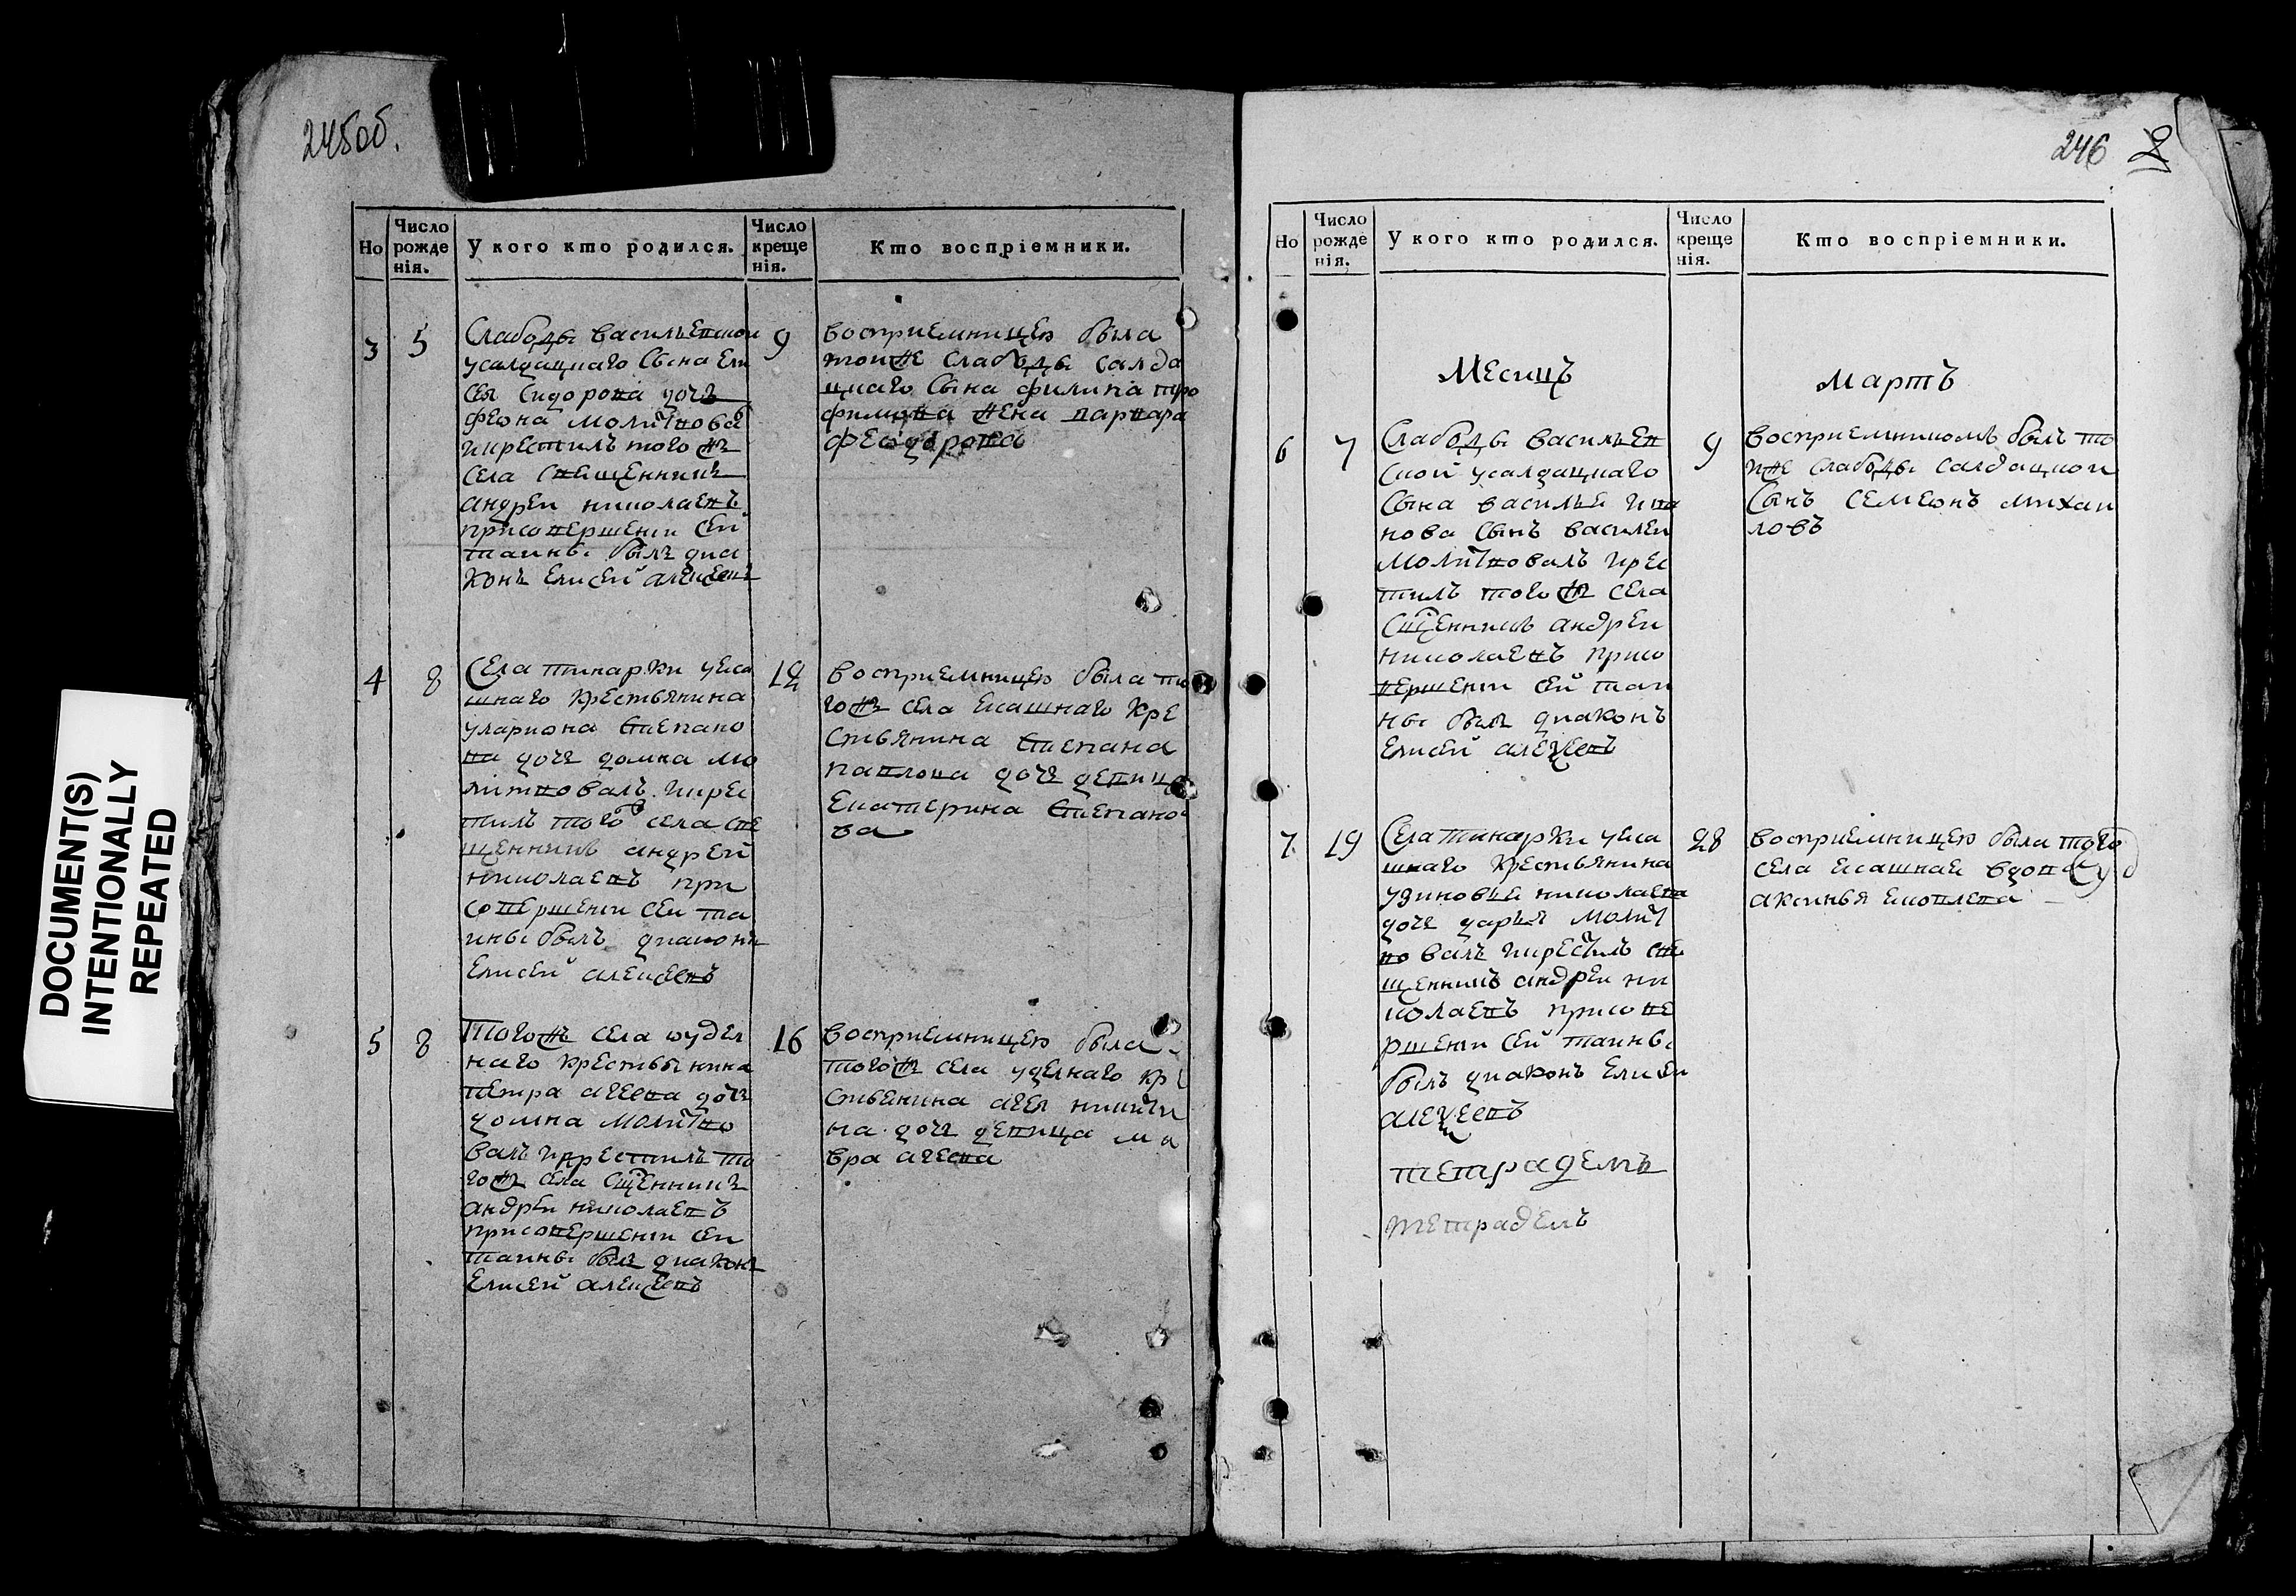 245об.
Но
Число рожде нія.
У кого кто родился.
Число креще нія.
Кто воспріемники.
3
5
Слабоды васильевскои
усалдацкаго Сына Ели
сея Сидорова дочь
феѡна молитвова
икрестилъ того жъ
села Священникъ
андреи николаевъ
присовершенiи сеи
таины былъ диа
конъ Елисей алексеевъ
9
восприемницею была
тоиже слабоды салда
цкаго Сына филипа тро
фимова жена варвара
феѡдорова
4
8
Села тинарки уяса
шнаго крестьянина
уларiона Степано
ва дочь домна мо
литвовалъ икрес
тилъ того села све
щенникъ андрей
николаевъ при
совершенiи сеи та
ины былъ диаконъ
Елисей алексеевъ
12
восприемницею была то
гожъ села ясашнаго кре
стьянина Степана
павлова дочь девица
Екатерина Степано
ва
5
8
тогожъ села ѡудел
наго крестьянина
петра агеева дочь
домна молитво
валъ икрестилъ то
гожъ села Сщенникъ
андреи николаевъ
присовершенiи сеи
таины былъ диаконъ
Елисей алексеевъ
16
восприемницею была
тогожъ села уделнаго кре
стьянина агея никити
на дочь девица ма
вра агеева
DOCUMENT(S)
INTENTIONALLY
REPEATED
246
Но
Число рожде нія.
У кого кто родился.
Число креще нія.
Кто воспріемники.
Месицъ
мартъ
6
7
Слабоды васильев
скои усалдацкаго
Сына василья ива
нова сынъ василеи
молитвовалъ икрес
тилъ того жъ села
Сщенникъ андреи
николаевъ присо
вершенiи сеи таи
ны былъ диаконъ
Елисей алексеевъ
9
восприемникомъ былъ то
иже слабоды салдацкои
Сынъ семеѡнъ михаи
ловъ
7
19
Села тинарки уяса
шнаго крестьянина
узиновья николаева
дочь дарья молит
вовалъ икрестилъ све
щенникъ андреи ни
колаевъ присове
ршенiи сей таины
былъ диаконъ Елисеи
алексеевъ
тетраделъ
тетраделъ
28
восприемницею была того
села ясашная вдова
аксинья яковлева